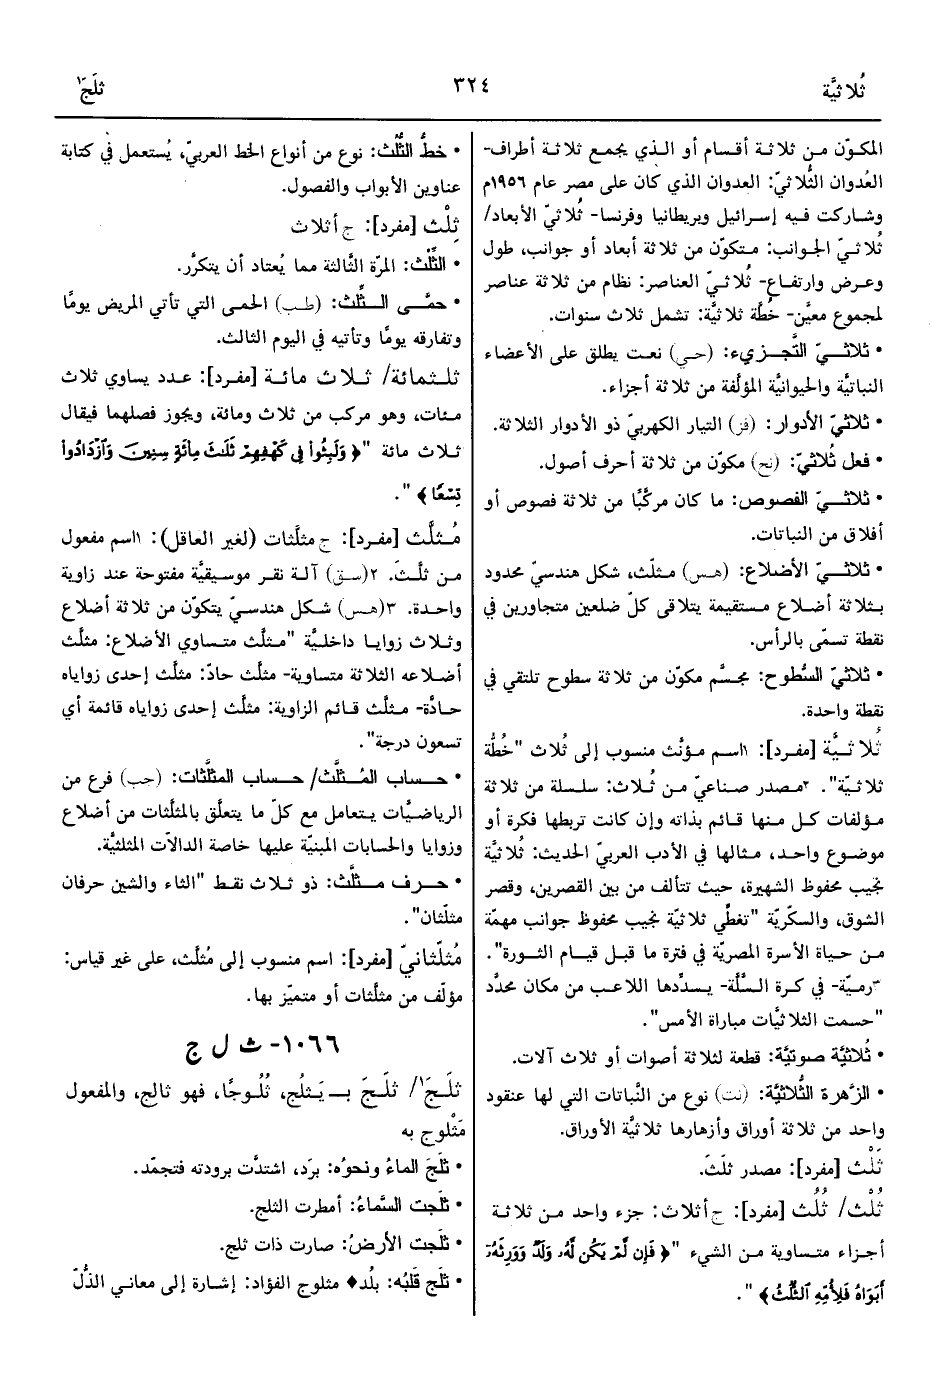 ثُلاثيَّة
٣٢٤
ثلَجَ١
المكوّن من ثلاثة أقسام أو الذي يجمع ثلاثة أطراف-
العُدوان الثُّلاثيّ: العدوان الذي كان على مصر عام ١٩٥٦م
وشاركت فيه إسرائيل وبريطانيا وفرنسا- ثُلاثيّ الأبعاد/
ثُلاثيّ الجوانب: متكوّن من ثلاثة أبعاد أو جوانب، طول
وعرض وارتفاع- ثُلاثيّ العناصر: نظام من ثلاثة عناصر
لمجموع معيَّن- خطَّة ثلاثيَّة: تشمل ثلاث سنوات.
• ثلاثيّ التَّجزيء: (حي) نعت يطلق على الأعضاء
النباتيَّة والحيوانيَّة المؤلّفة من ثلاثة أجزاء.
• ثلاثيّ الأدوار: (فز) التيار الكهربيّ ذو الأدوار الثلاثة.
• فعل ثُلاثيّ: (نح) مكوّن من ثلاثة أحرف أصول.
• ثلاثيّ الفصوص: ما كان مركَّبًا من ثلاثة فصوص أو
أفلاق من النباتات.
• ثلاثيّ الأضلاع: (هس) مثلّث، شكل هندسيّ محدود
بثلاثة أضلاع مستقيمة يتلاقى كلّ ضلعين متجاورين في
نقطة تسمّى بالرأس.
• ثلاثيّ السُّطوح: مجسَّم مكوّن من ثلاثة سطوح تلتقي في
نقطة واحدة.
ثُلاثيَّة [مفرد]: ١اسم مؤنَّث منسوب إلى ثُلاث "خُطَّة
ثلاثيّة". ٢مصدر صناعيّ من ثُلاث: سلسلة من ثلاثة
مؤلفات كل منها قائم بذاته وإن كانت تربطها فكرة أو
موضوع واحد، مثالها في الأدب العربيّ الحديث: ثُلاثيَّة
نجيب محفوظ الشهيرة، حيث تتألف من بين القصرين، وقصر
الشوق، والسكّريّة "تغطّي ثلاثيّة نجيب محفوظ جوانب مهمّة
من حياة الأسرة المصريّة في فترة ما قبل قيام الثورة".
٣رميّة- في كرة السَّلَّة- يسدِّدها اللاعب من مكان محدَّد
"حسمت الثلاثيَّات مباراة الأمس".
• ثُلاثيَّة صوتيَّة: قطعة لثلاثة أصوات أو ثلاث آلات.
• الزَّهرة الثُّلاثيَّة: (نت) نوع من النَّباتات التي لها عنقود
واحد من ثلاثة أوراق وأزهارها ثلاثيَّة الأوراق.
ثَلْث [مفرد]: مصدر ثلَثَ.
ثُلْث/ ثُلُث [مفرد]: ج أثلاث: جزء واحد من ثلاثة
أجزاء متساوية من الشيء "﴿ فَإِن لَّمْ يَكُن لَّهُۥ وَلَدٌ وَوَرِثَهُۥٓ
أَبَوَاهُ فَلِأُمِّهِ ٱلثُّلُثُ﴾ ".
• خطُّ الثُّلُث: نوع من أنواع الخط العربيّ، يُستعمل في كتابة
عناوين الأبواب والفصول.
ثِلْث [مفرد]: ج أثلاث
• الثِّلْث: المرّة الثَّالثة مما يُعتاد أن يتكرَّر.
• حمَّى الثِّلث: (طب) الحمى التي تأتي المريض يومًا
وتفارقه يومًا وتأتيه في اليوم الثالث.
ثلثمائة/ ثلاث مائة [مفرد]: عدد يساوي ثلاث
مئات، وهو مركب من ثلاث ومائة، ويجوز فصلهما فيقال
ثلاث مائة "﴿ وَلَبِثُوا۟ فِى كَهْفِهِمْ ثَلَـٰثَ مِا۟ئَةٍ سِنِينَ وَٱزْدَادُوا۟
تِسْعًا﴾ ".
مُثلَّث [مفرد]: ج مثلَّثات (لغير العاقل): ١اسم مفعول
من ثلَّثَ. ٢(سق) آلة نقر موسيقيَّة مفتوحة عند زاوية
واحدة. ٣(هس) شكل هندسيّ يتكوّن من ثلاثة أضلاع
وثلاث زوايا داخليَّة "مثلَّث متساوي الأضلاع: مثلّث
أضلاعه الثلاثة متساوية- مثلّث حادّ: مثلَّث إحدى زواياه
حادَّة- مثلَّث قائم الزاوية: مثلَّث إحدى زواياه قائمة أي
تسعون درجة".
• حساب المُثلَّث/ حساب المثلَّثات: (جب) فرع من
الرياضيَّات يتعامل مع كلّ ما يتعلَّق بالمثلَّثات من أضلاع
وزوايا والحسابات المبنيّة عليها خاصة الدالاّت المثلثيَّة.
• حرف مثلَّث: ذو ثلاث نقط "الثاء والشين حرفان
مثلّثان".
مُثلّثانيّ [مفرد]: اسم منسوب إلى مُثلَّث، على غير قياس:
مؤلّف من مثلَّثات أو متميّز بها.
١٠٦٦- ث ل ج
ثلَجَ١/ ثلَجَ بـ يَثلُج، ثُلُوجًا، فهو ثالِج، والمفعول
مَثْلوج به
• ثلَجَ الماءُ ونحوُه: برَد، اشتدَّت برودته فتجمّد.
• ثلَجت السَّماءُ: أمطرت الثلج.
• ثلَجت الأرضُ: صارت ذات ثلج.
• ثلَج قلبُه: بلُد♦ مثلوج الفؤاد: إشارة إلى معاني الذُّلّ